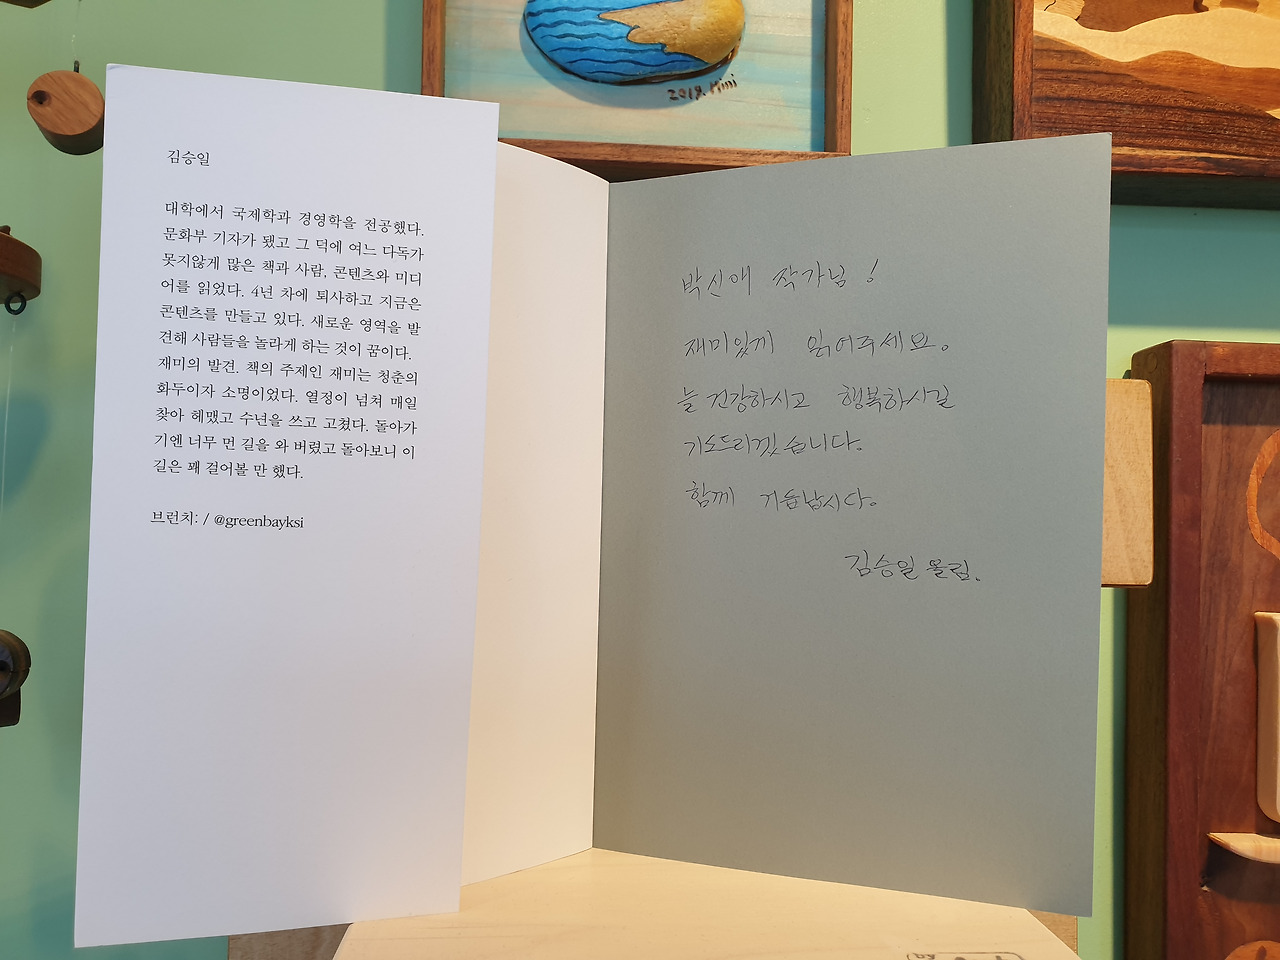 2019. Mini
김승일
대학에서 국제학과 경영학을 전공했다.
문화부 기자가 됐고 그 덕에 여느 다독가
못지않게 많은 책과 사람, 콘텐츠와 미디
어를 읽었다. 4년 차에 퇴사하고 지금은
콘텐츠를 만들고 있다. 새로운 영역을 발
견해 사람들을 놀라게 하는 것이 꿈이다.
재미의 발견. 책의 주제인 재미는 청춘의
화두이자 소명이었다. 열정이 넘쳐 매일
찾아 헤맸고 수년을 쓰고 고쳤다. 돌아가
기엔 너무 먼 길을 와 버렸고 돌아보니 이
길은 꽤 걸어볼 만 했다.
브런치: / @greenbayksi
박신애 작가님!
재미있게 읽어주세요.
늘 건강하시고 행복하시길
기도드리겠습니다.
함께
김승일 올림.